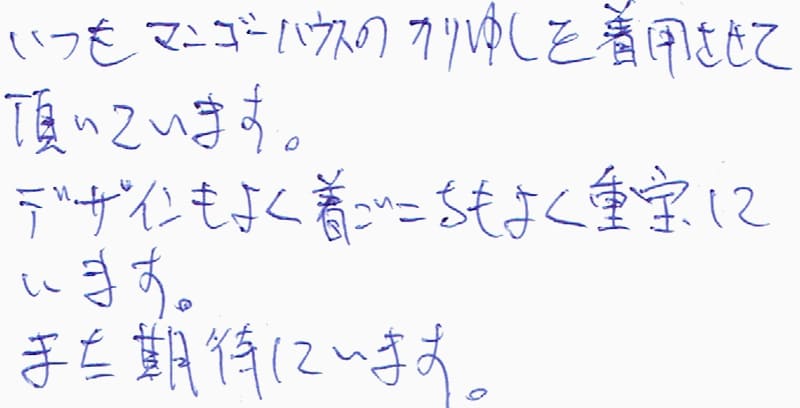 いつもマンゴーハウスのカリゆしを着用させて
頂いています。
デザインもよく着ごこちもよく重宝して
います。
また期待しています。